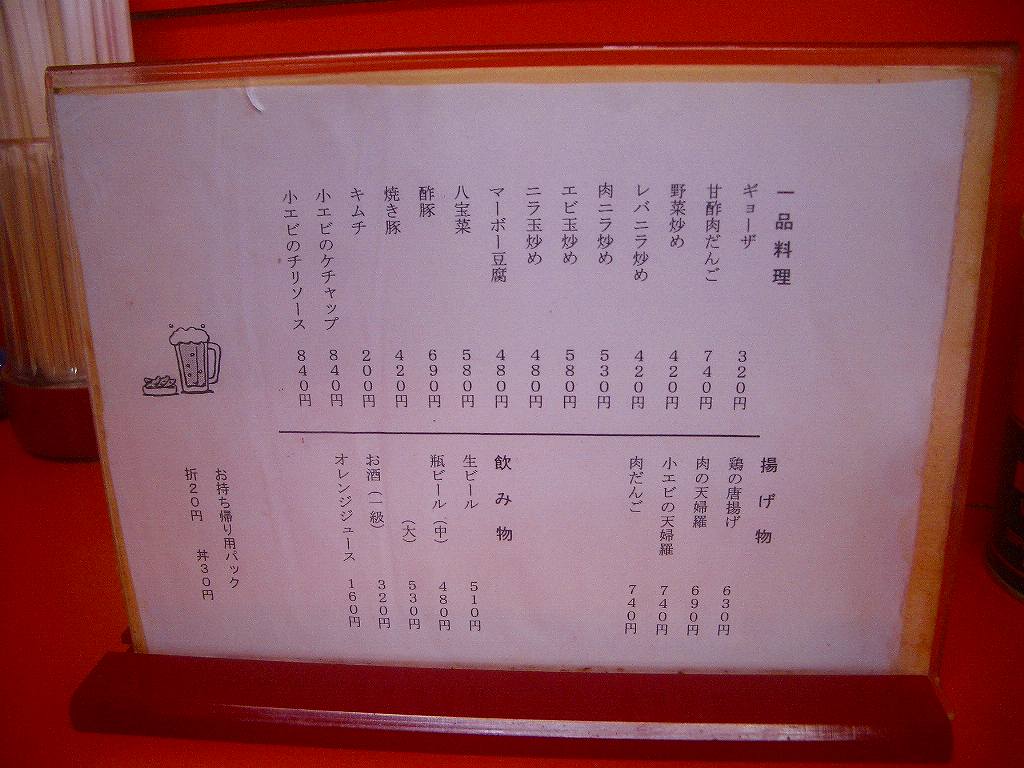 一品料理
ギョーザ 320円
甘酢肉だんご 740円
野菜炒め 420円
レバニラ炒め 420円
肉ニラ炒め 530円
エビ玉炒め 580円
ニラ玉炒め 480円
マーボー豆腐 480円
八宝菜 580円
酢豚 690円
焼き豚 420円
キムチ 200円
小エビのケチャップ 840円
小エビのチリソース 840円
揚げ物
鶏の唐揚げ 630円
肉の天婦羅 690円
小エビの天婦羅 740円
肉だんご 740円
飲み物
生ビール 510円
瓶ビール（中） 480円
（大） 530円
お酒（一級） 320円
オレンジジュース 160円
お持ち帰り用パック
折20円 丼30円